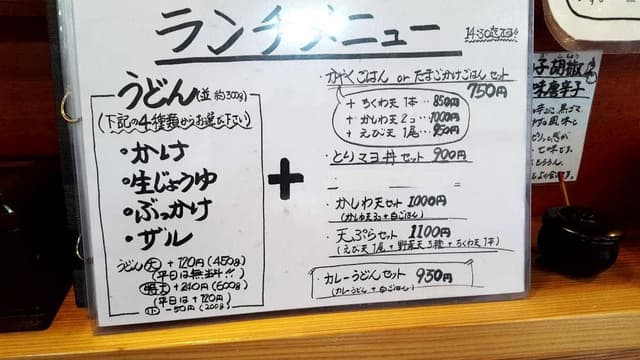 ランチメニュー
14:30迄です!!
うどん(並 約300g)
(下記の4種類からお選び下さい)
・かけ
・生じょうゆ
・ぶっかけ
・ザル
うどん大 +120円(450g)
(平日は無料!!)
+240円(600g)
(平日は+120円)
小 -50円(200g)
+
かやくごはん or たまごかけごはん セット
750円
+ ちくわ天1本…850円
+ かしわ天2コ…1000円
+ えび天1尾…950円
とりマヨ丼セット 900円
かしわ天セット 1000円
(かしわ天3コ+白ごはん)
天ぷらセット 1100円
(えび天1尾+野菜天3種+ちくわ天1本)
カレーうどんセット 950円
(カレーうどん+白ごはん)
子胡椒
味唐辛子